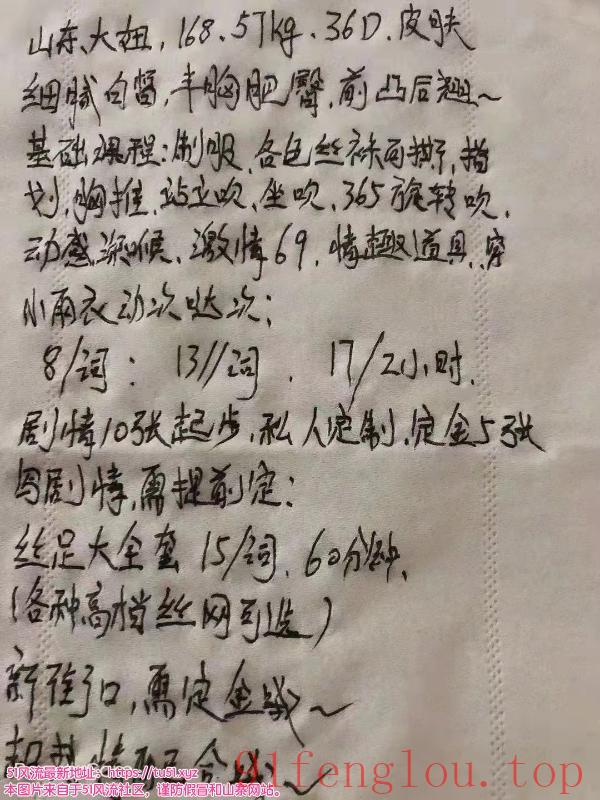 山东、大妞，168.57kg、36D，皮肤
细腻白皙，丰胸肥臀，前凸后翘～
基础课程：制服、各色丝袜可撕，指
划，胸推，站立吹、坐吹、365旋转吹，
动感深喉、激情69，情趣道具，穿
小雨衣动次哒次：
8/词： 13//词、 17/2小时，
剧情10张起步，私人定制，定金5张
写剧情，需提前定：
丝足大全套 15/词、60分钟，
（各种高档丝网可选）
新街口，需定金哦～
51风流最新地址：https://tu51.xyz
本图片来自于51风流社区，谨防假冒和山寨网站。
91fenglou.top